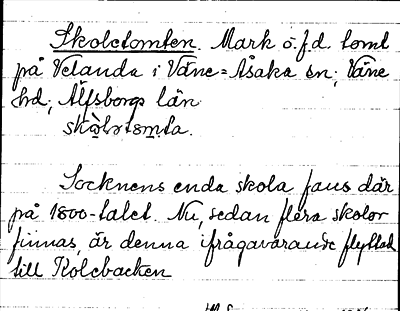 Skoletomten. Mark o.f.d. tomt
på Velanda i Väne=Åsaka sn; Väne
hd; Älfsborgs län
Socknens enda skola fans där
på 1800-talet. Nu, sedan flera skolor
finnas, är denna ifrågavarande flyttad
till Kolebacken